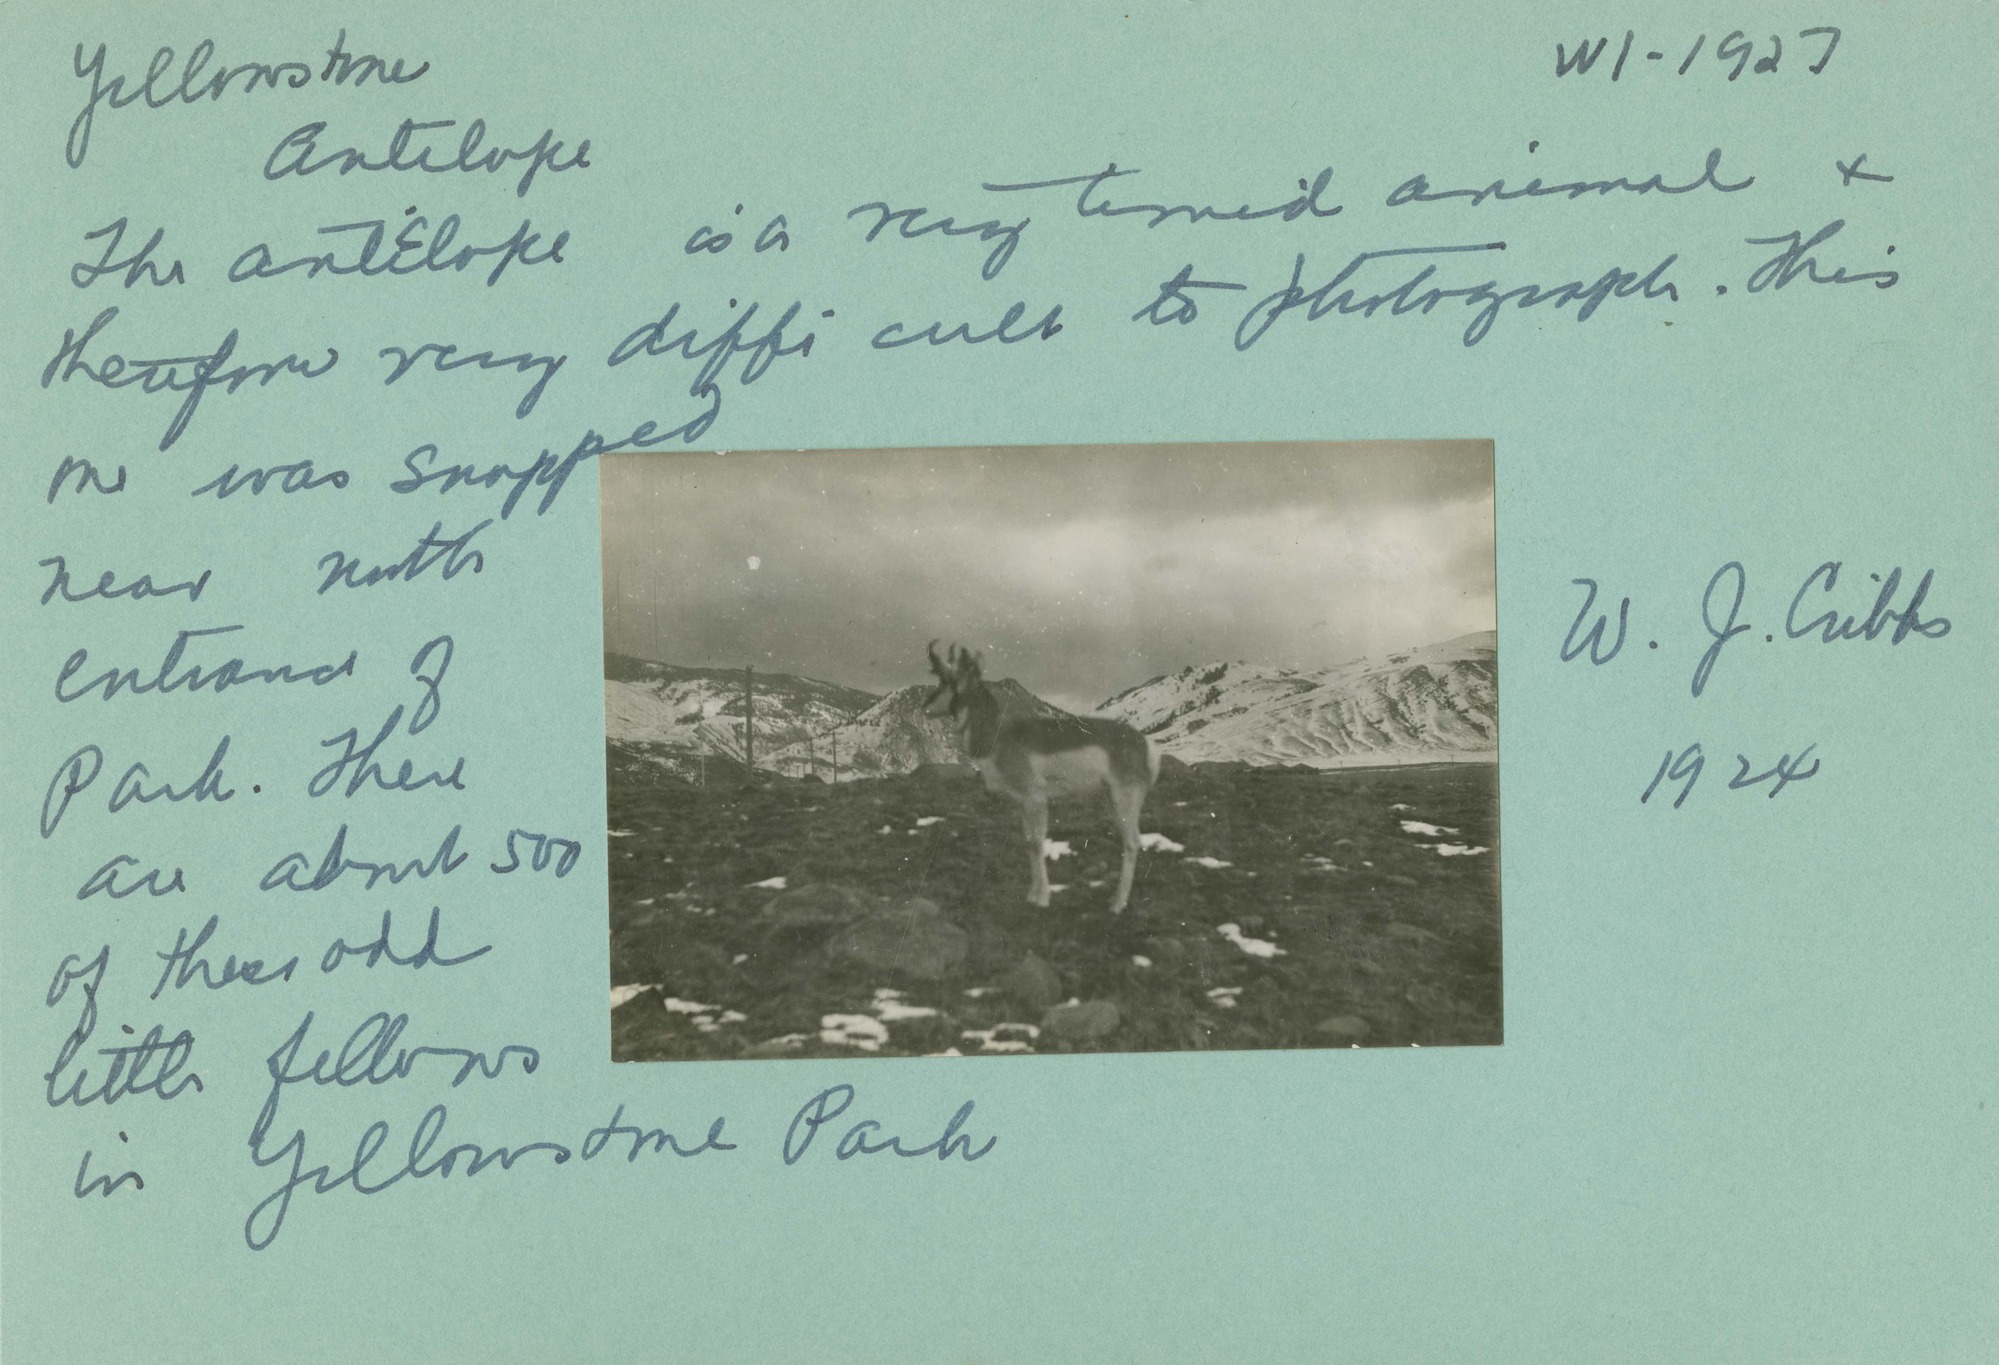 Yellowstone
W1-1927
Antelope
The antelope is a very temid animal +
therefore very difficult to photograph. This
one was snapped
near north
entrance of
Park. There
are about 500
of these odd
little fellows
in Yellowstone Park
W. J. Cribbs
1924